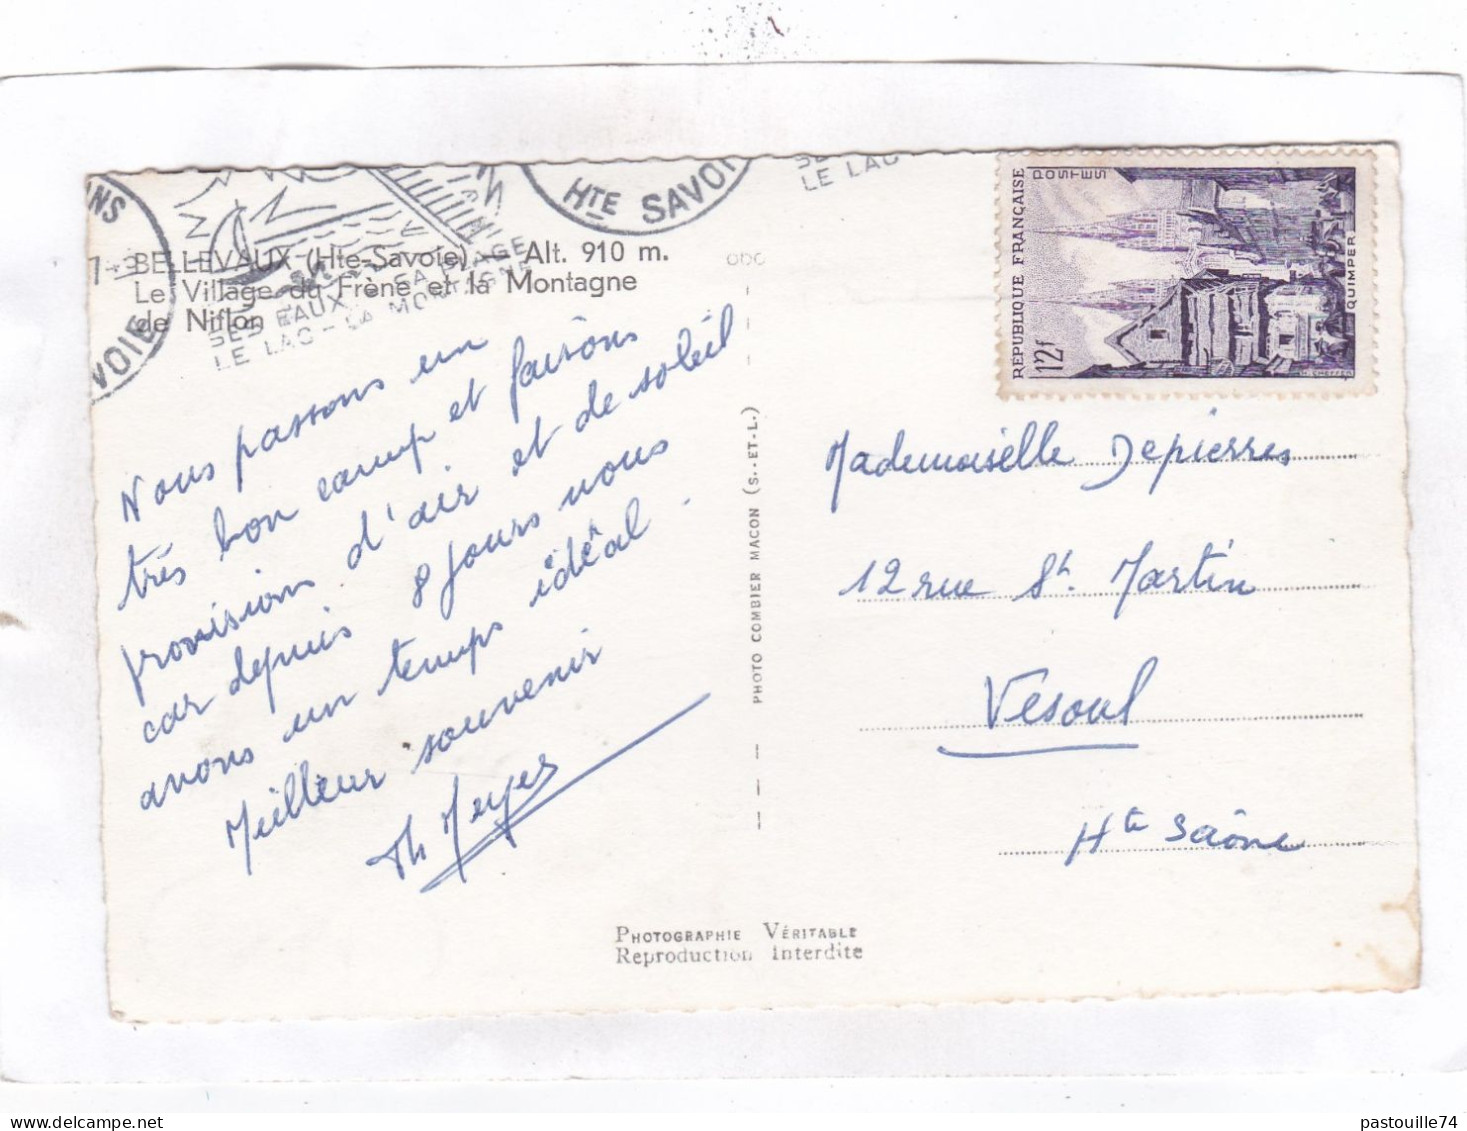 HTE SAVOI
LE LAC
BELLEVAUX (Hte-Savoie) — Alt. 910 m.
Le Village du Frène et la Montagne
de Niflon
SES EAUX - SA PLAGE
LE LAC - LA MONTAGNE
VOIE
Nous passons un
très bon camp et faisons
provision d'air et de soleil
car depuis 8 jours nous
avons un temps idéal.
Meilleur souvenir
Th Meyer
PHOTO COMBIER MACON (S.-ET-L.)
REPUBLIQUE FRANÇAISE
POSTES
12f
QUIMPER
Mademoiselle Depierres
12 rue St. Martin
Vesoul
Hte Saône
PHOTOGRAPHIE VÉRITABLE
Reproduction Interdite
pastouille74